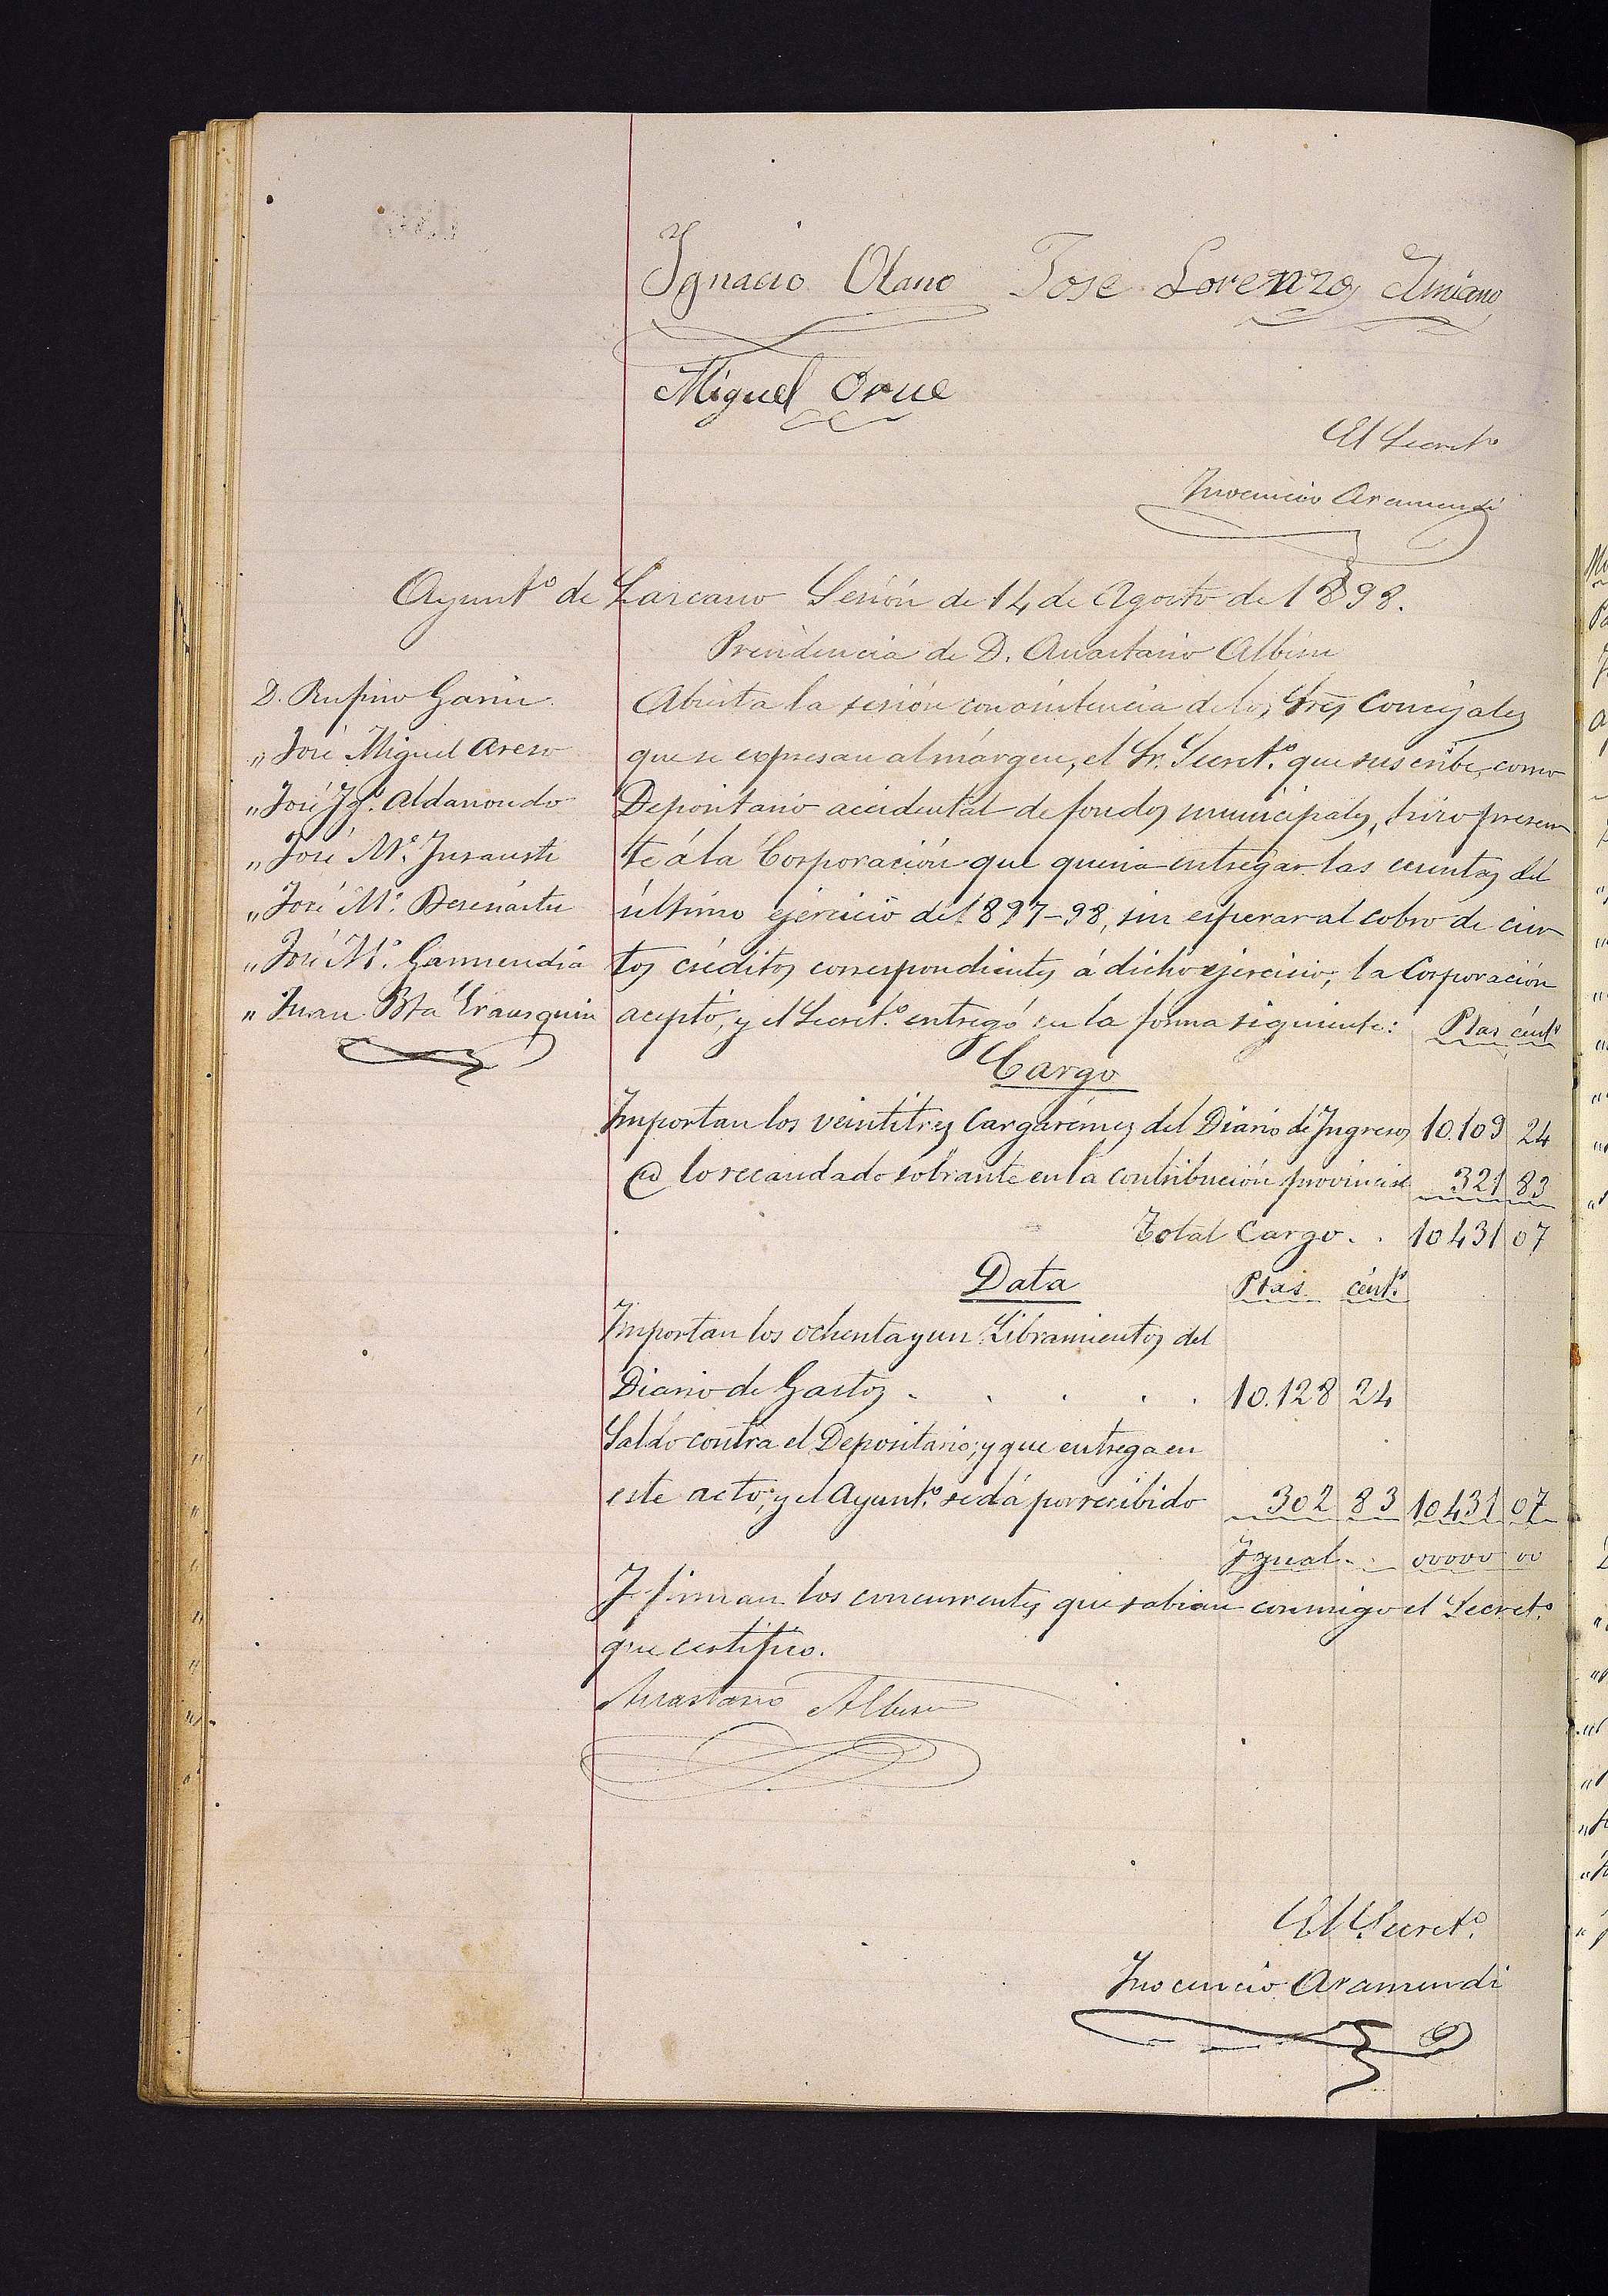 Ignacio Olano Jose Lorenzo Imiano
Miguel Orue
El Secret.º
Inocencio Aramendi
Ayunt.º de Lazcano Sesión de 14 de Agosto de 1898.
Presidencia de D. Anastasio Albisu
D. Rufino Garin
" José Miguel Areso
" José Ig.º Aldanondo
" José M.ª Insausti
" José M.ª Bereciartu
" José M.ª Garmendia
" Juan Bta Irausquin
Abierta la sesión con asistencia de los Sres Concejales
que se expresan al márgen, el Sr. Secret.º que suscribe, como
Depositario accidental de fondos municipales, hizo presen
te á la Corporación que queria entregar las cuentas del
último ejercicio de 1897-98, sin esperar al cobro de cier
tos créditos correspondientes á dicho ejercicio; la Corporación
aceptó, y el Secret.º entregó en la forma siguiente: Ptas cént.s
Cargo
Importan los veintitres Cargarémes del Diario de Ingresos 10.109 24
lo recaudado sobrante en la contribución provincial 321 83
Total Cargo . . 10431 07
Data Ptas cént.s
Importan los ochenta y un Libramientos del
Diario de Gastos . . . . . 10.128 24
Saldo contra el Depositario; y que entrega en
este acto; y el Ayunt.º se dá por recibido 302 83 10431 07
Igual . . 00000 00
Y firman los concurrentes que sabian conmigo el Secret.º
que certifico.
Anastasio Albisu
El Secret.º
Inocencio Aramendi